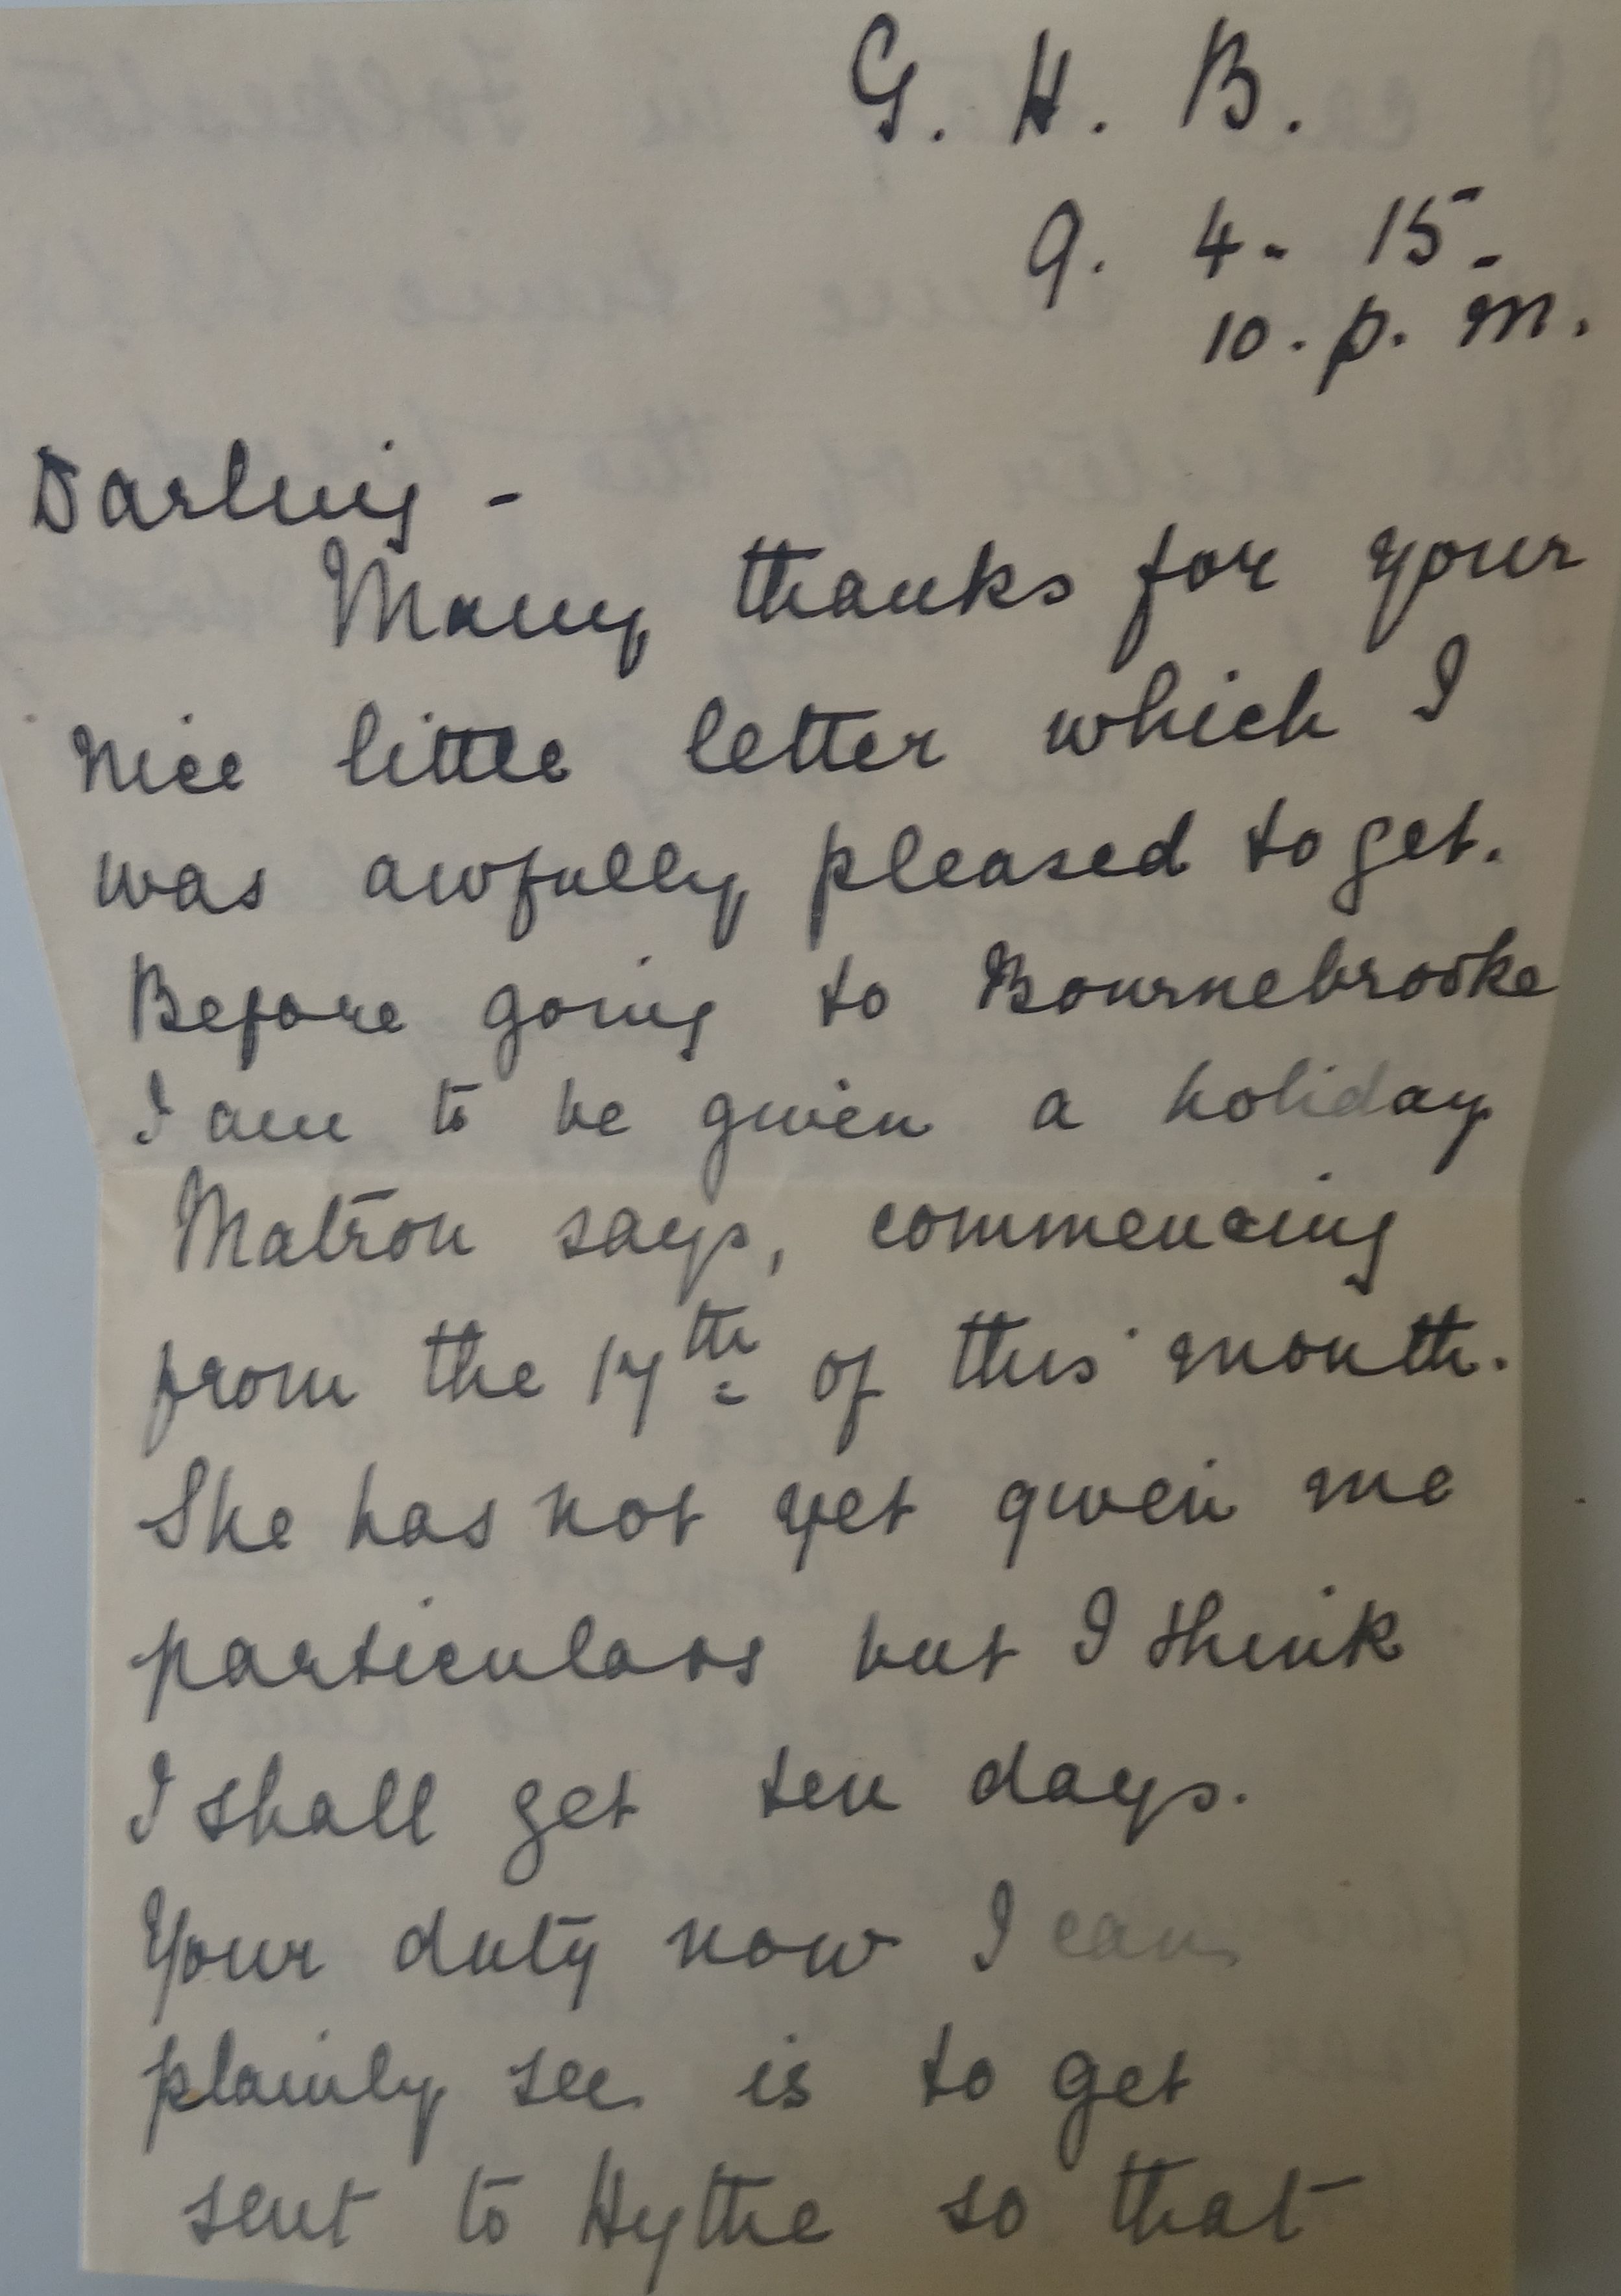 G. H. B.
9. 4. 15.
10. p. m.
Darling -
Many thanks for your
nice little letter which I
was awfully pleased to get.
Before going to Bournebrooke
I am to be given a holiday
Matron says, commencing
from the 17th of this month.
She has not yet given me
particulars but I think
I shall get ten days.
Your duty now I can
plainly see is to get
sent to Hythe so that